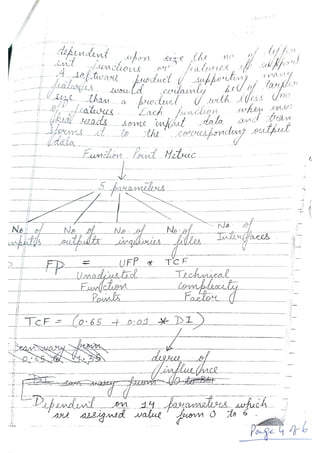 dependent upon size the no of differ
ent functions or features it support
A software product supporting many
features would certainly be of larger
size than a product with less no
of features. Each function when invo
ked reads some input data and tran
sforms it to the corresponding output
data.
Function Point Metric
5 parameters
No of inputs
No of outputs
No of inquiries
No of files
No of Interfaces
FP = UFP * TCF
Unadjusted Function Points
Technical Complexity Factor
TCF = (0.65 + 0.01 * DI)
can vary from
0.65 to 1.35
degree of
influence
DI can vary from 0 to 84
Dependent on 14 parameters which
are assigned value from 0 to 6.
Page 4 of 6